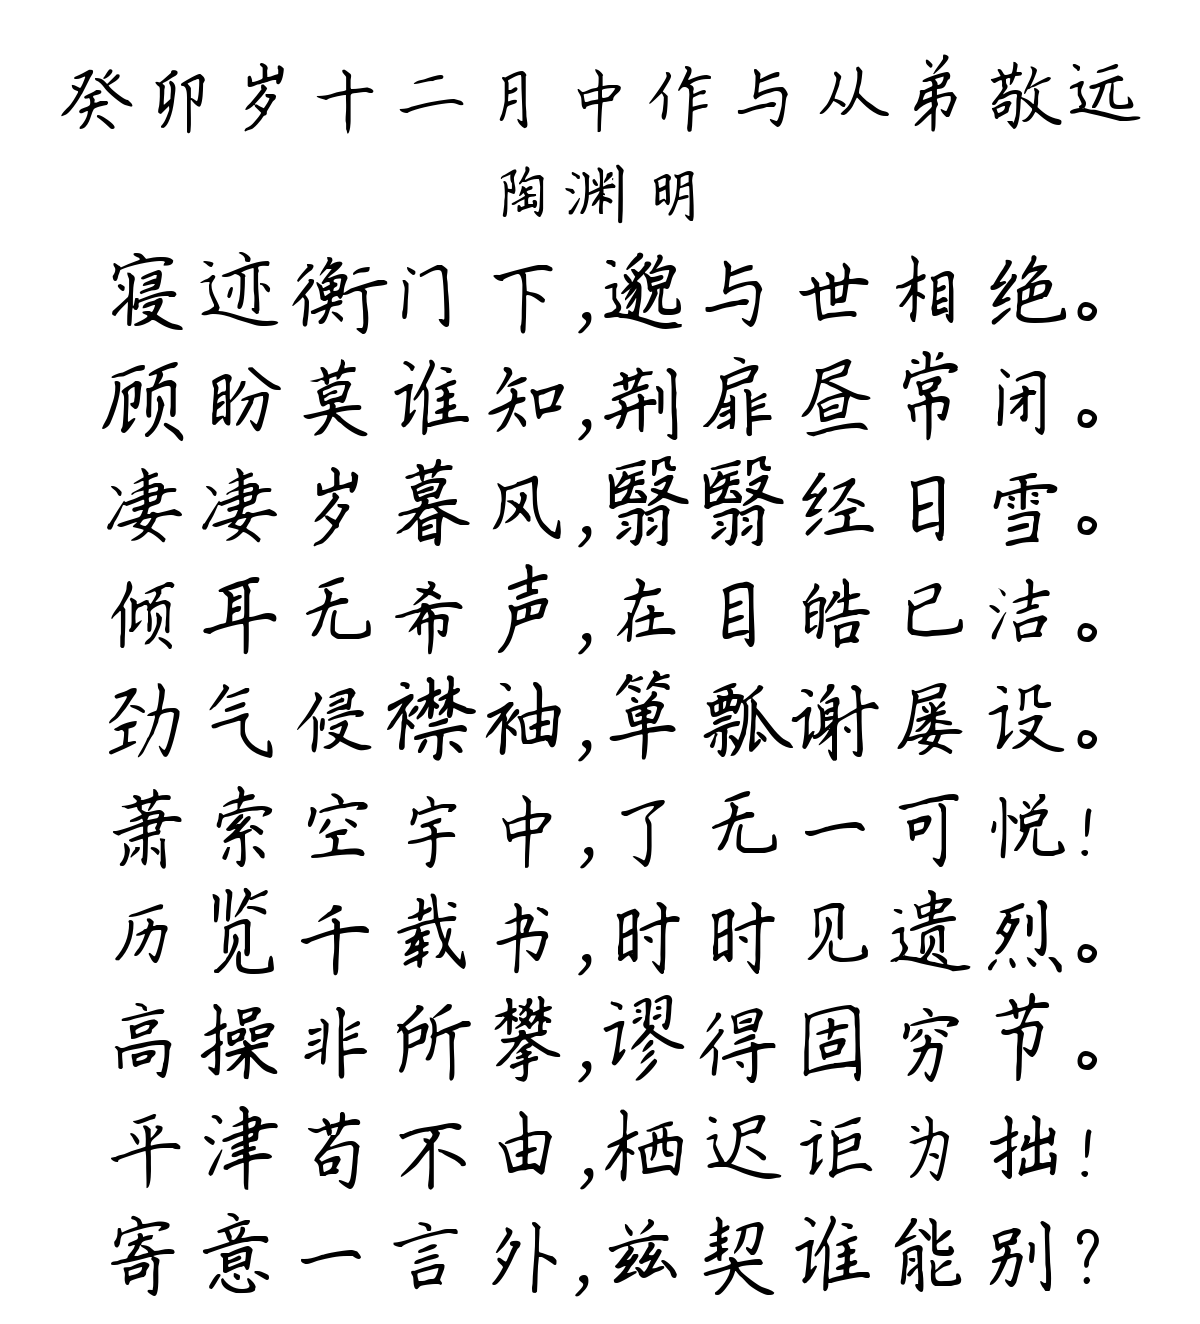 癸卯岁十二月中作与从弟敬远
陶渊明
寝迹衡门下,邈与世相绝。
顾盼莫谁知,荆扉昼常闭。
凄凄岁暮风,翳翳经日雪。
倾耳无希声,在目皓已洁。
劲气侵襟袖,箪瓢谢屡设。
萧索空宇中,了无一可悦!
历览千载书,时时见遗烈。
高操非所攀,谬得固穷节。
平津苟不由,栖迟讵为拙!
寄意一言外,兹契谁能别?